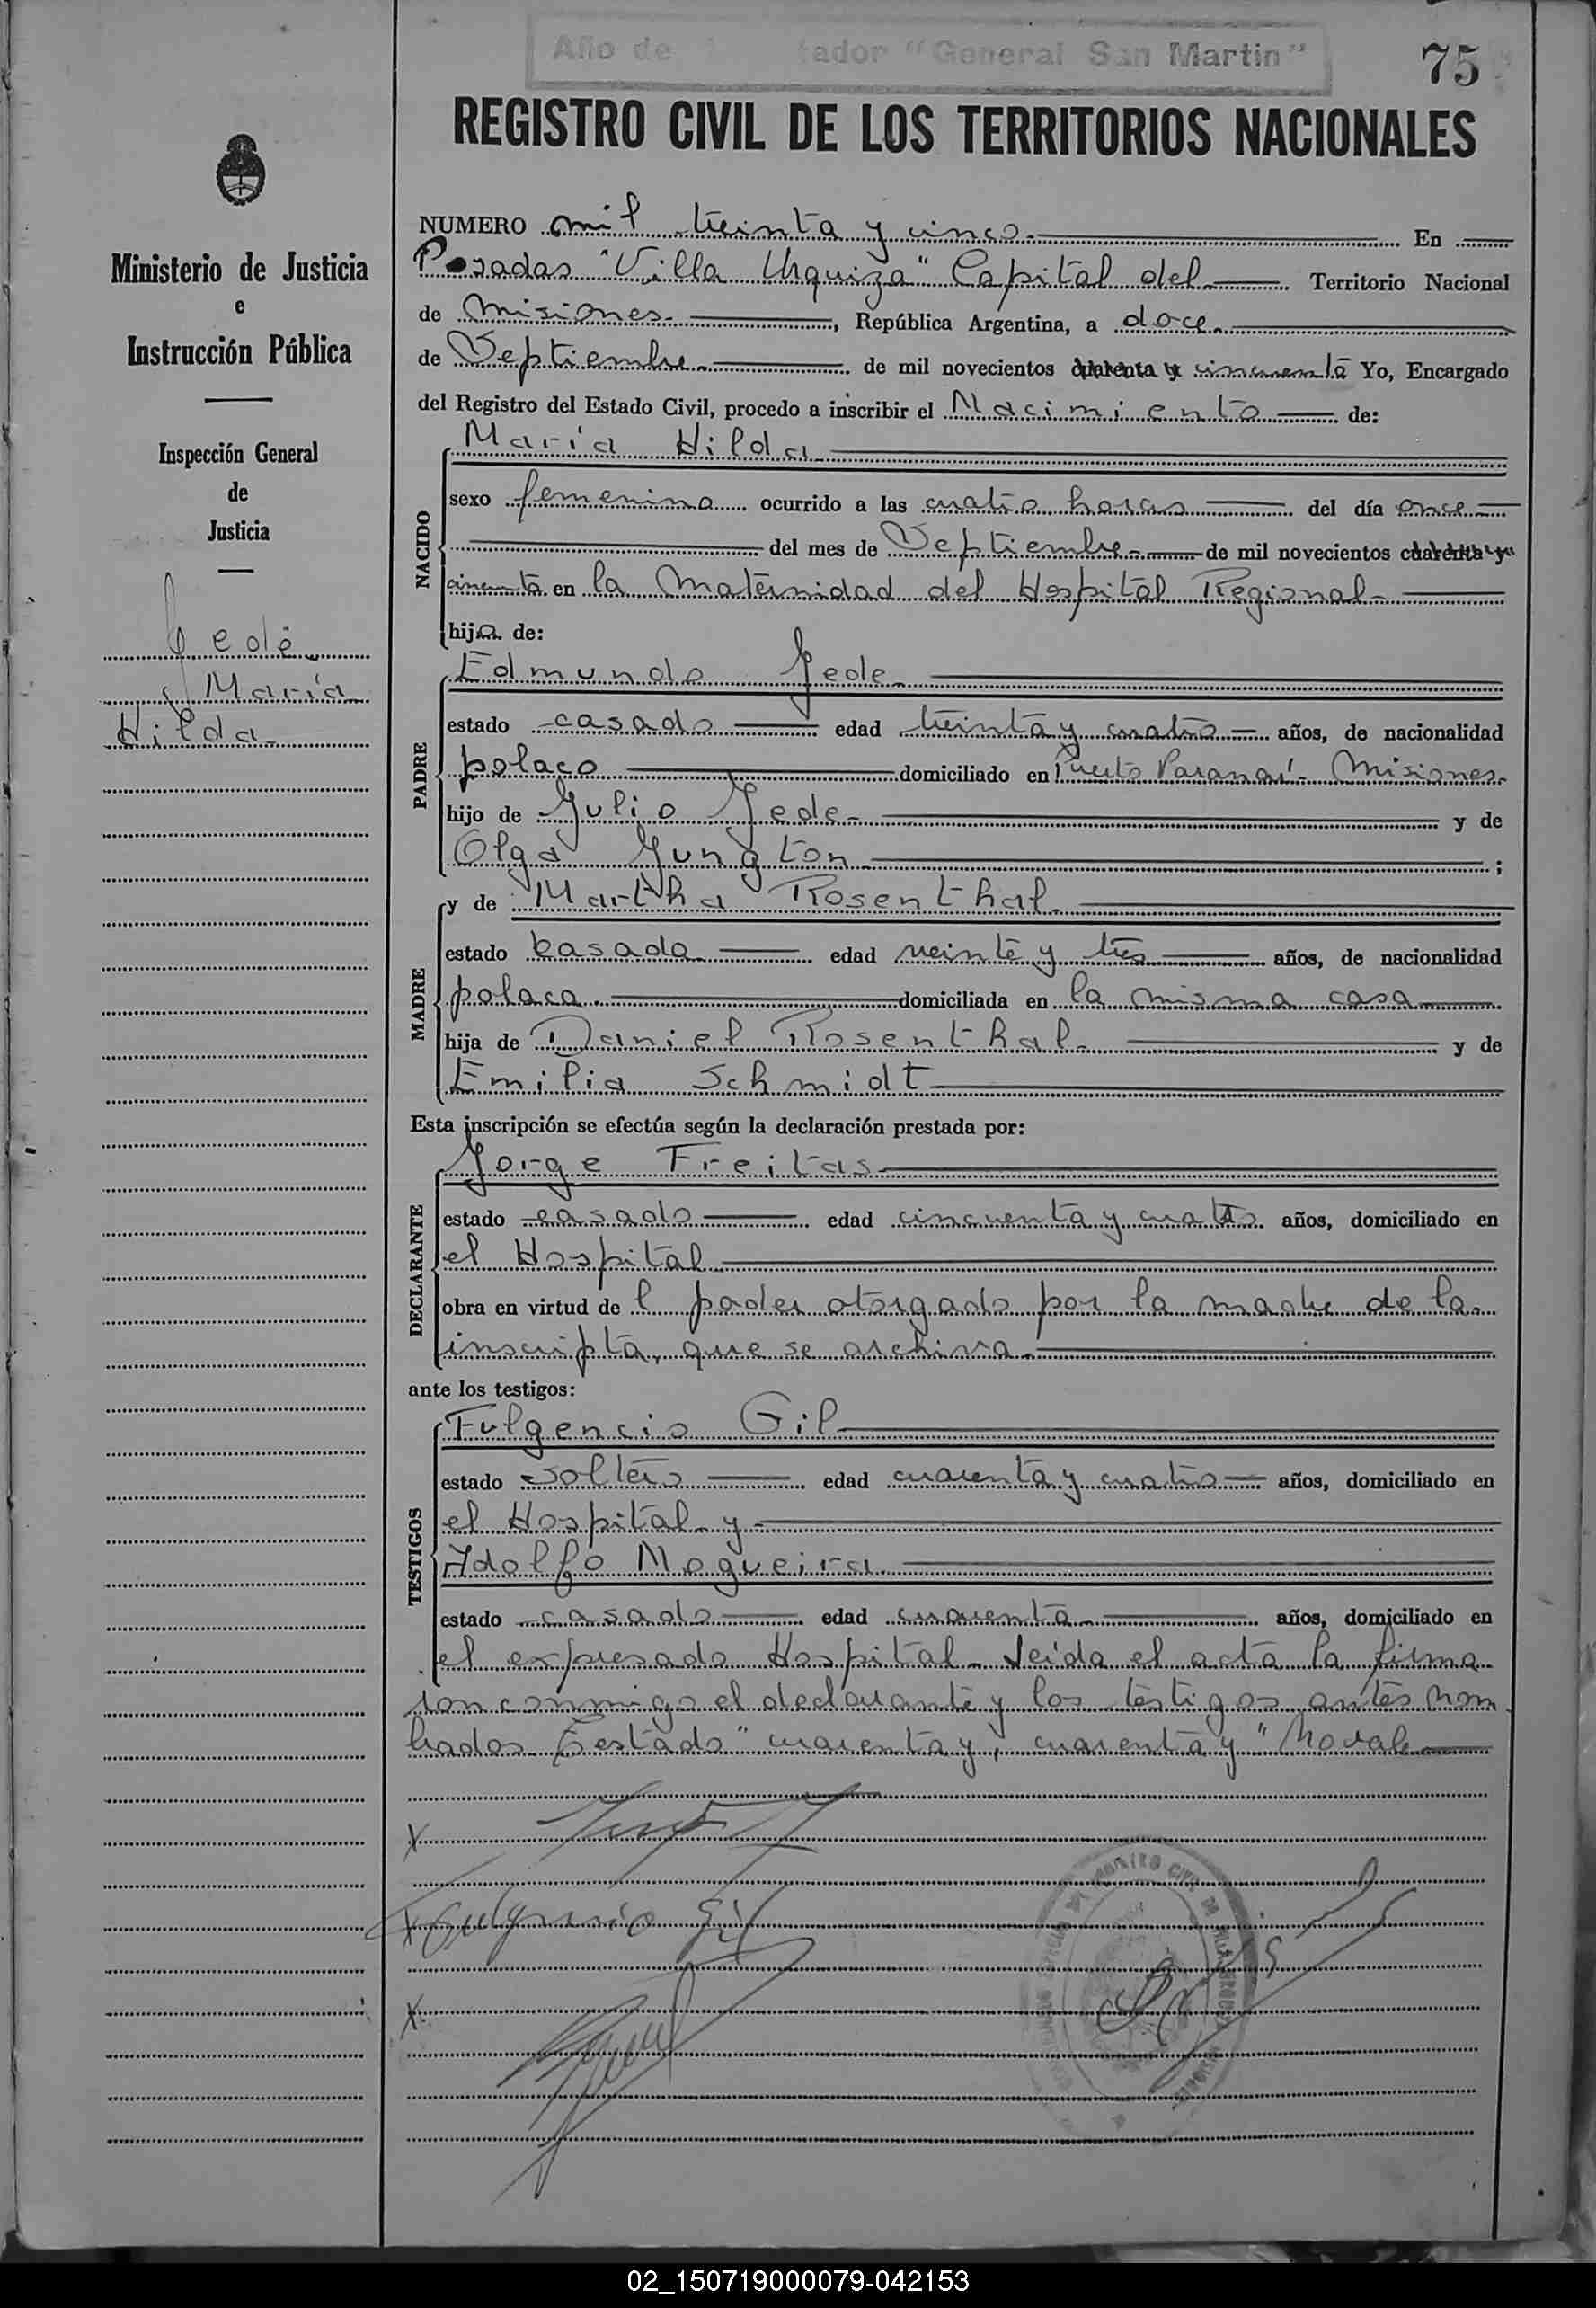 Año de tador "General San Martin"
75
REGISTRO CIVIL DE LOS TERRITORIOS NACIONALES
Ministerio de Justicia
e
Instrucción Pública
Inspección General
de
Justicia
Jede
María
Hilda
NUMERO mil treinta y cinco En
Posadas "Villa Urquiza" Capital del Territorio Nacional
de Misiones , República Argentina, a doce
de Septiembre de mil novecientos cuarenta y cincuenta Yo, Encargado
del Registro del Estado Civil, procedo a inscribir el Nacimiento de:
NACIDO
María Hilda
sexo femenino ocurrido a las cuatro horas del día once
del mes de Septiembre de mil novecientos cuarenta y
cincuenta en la Maternidad del Hospital Regional
hija de:
PADRE
Edmundo Jede
estado casado edad treinta y cuatro años, de nacionalidad
polaco domiciliado en Puerto Paranaí - Misiones.
hijo de Julio Jede y de
Olga Jungton ;
MADRE
y de Martha Rosenthal
estado casada edad veinte y tres años, de nacionalidad
polaca. domiciliada en la misma casa
hija de Daniel Rosenthal y de
Emilia Schmidt
Esta inscripción se efectúa según la declaración prestada por:
DECLARANTE
Jorge Freitas
estado casado edad cincuenta y cuatro años, domiciliado en
el Hospital
obra en virtud de l poder otorgado por la madre de la
inscripta, que se archiva
ante los testigos:
TESTIGOS
Fulgencio Gil
estado soltero edad cuarenta y cuatro años, domiciliado en
el Hospital y
Adolfo Nogueira
estado casado edad cuarenta años, domiciliado en
el expresado Hospital - Leida el acta la firma
ron conmigo el declarante y los testigos antes nom
brados Testado "cuarenta y, cuarenta y" No vale
X
X Fulgencio Gil
X
REGISTRO CIVIL DE VILLA URQUIZA
02_150719000079-042153